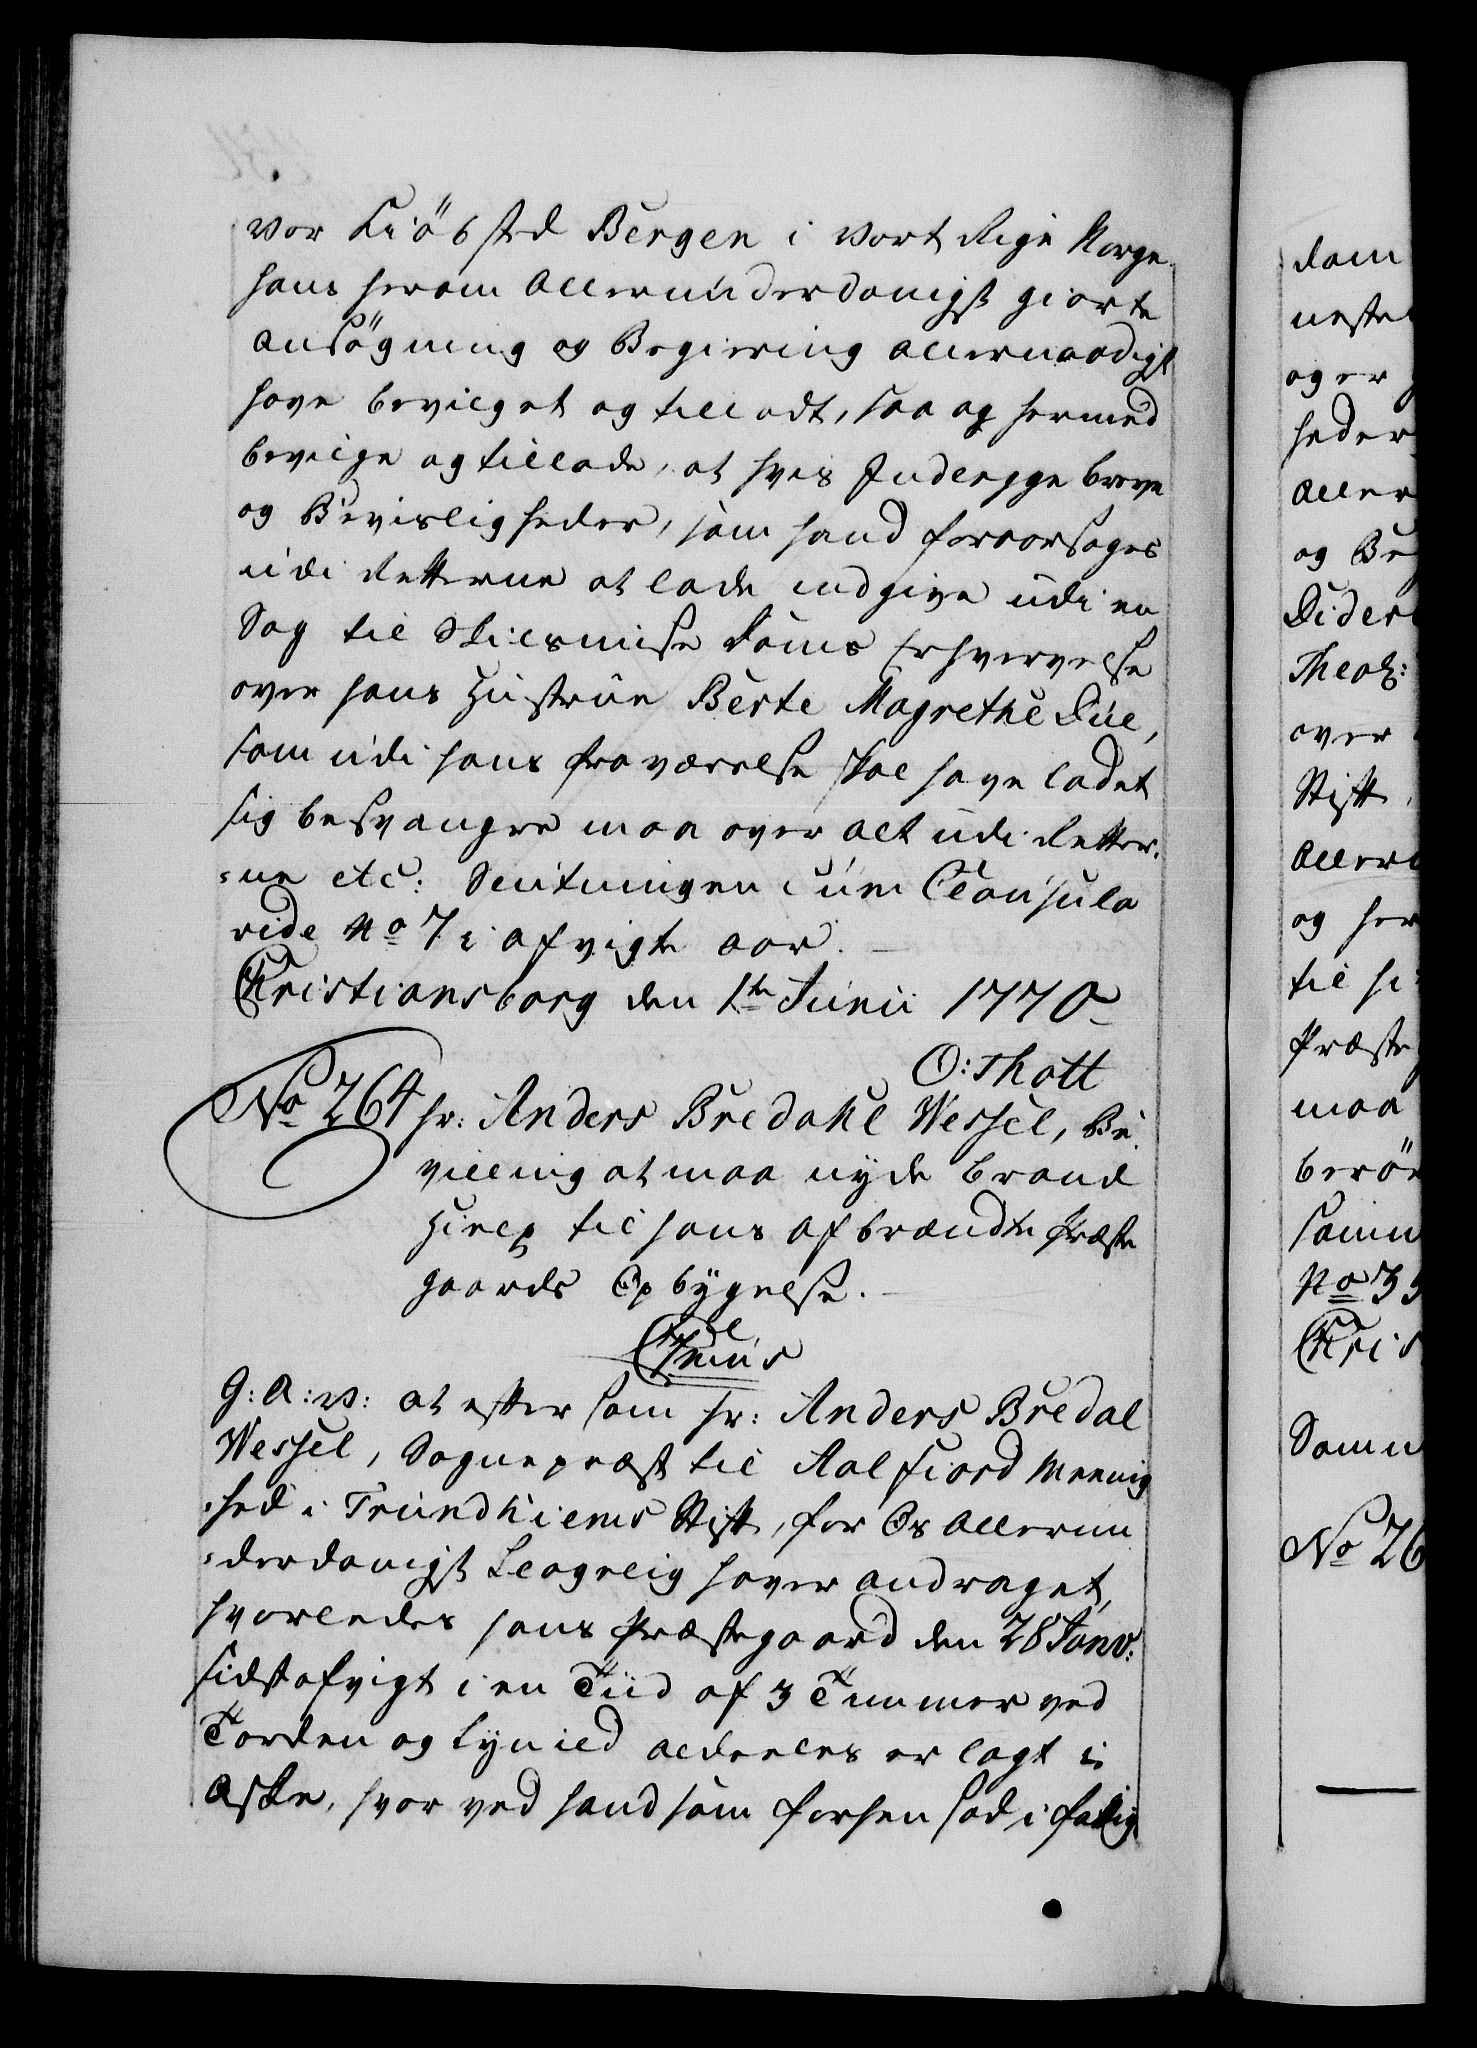 vor Kiöbsted Bergen i vort Rige Norge
hans herom allerunderdanigst giorte
ansögning og Begiering allernaadigst
have bevilget og tilladt, saa og hermed
bevilge og tillade, at hvis Indlegge breve
og Bevisligheder, som hand foraarsages
udi Retterne at lade indgive udi en
Sag til Skilsmise Doms Erhvervelse
over hans Hustrue Berte Magrethe Due,
som udi hans fraværelse skal have ladet
sig besvangre maa over alt udi Retter¬
=ne etc: Slutningen cum Clausula
vide No 7 i afvigte aar.
Christiansborg den 1te Junii 1770
O: Thott
No 264 hr: Anders Bredahl Wessel, Be¬
villing at maa nyde brand
Hielp til hans afbrændte Præste
gaards Opbygelse.
C 7mus
G: A: v: at eftersom hr: Anders Bredal
Wessel, Sognepræst til Aalfiord Meenig
=hed i Trundhiems Stift, for Os allerun
=derdanigst klagelig haver andraget,
hvorledes hans Præstegaard den 28 Janv:
sidstafvigt i en Tiid af 3 Timmer ved
Torden og Lynild aldeeles er lagt i
aske, hvor ved hand som forhen sad i fattig
dom
neste
og er
heder
aller
og Be
Dider
Theol:
over
Stift
aller
og her
til hi
Præste
maa
berö
samm
No 39
Chris
Samm
No 26